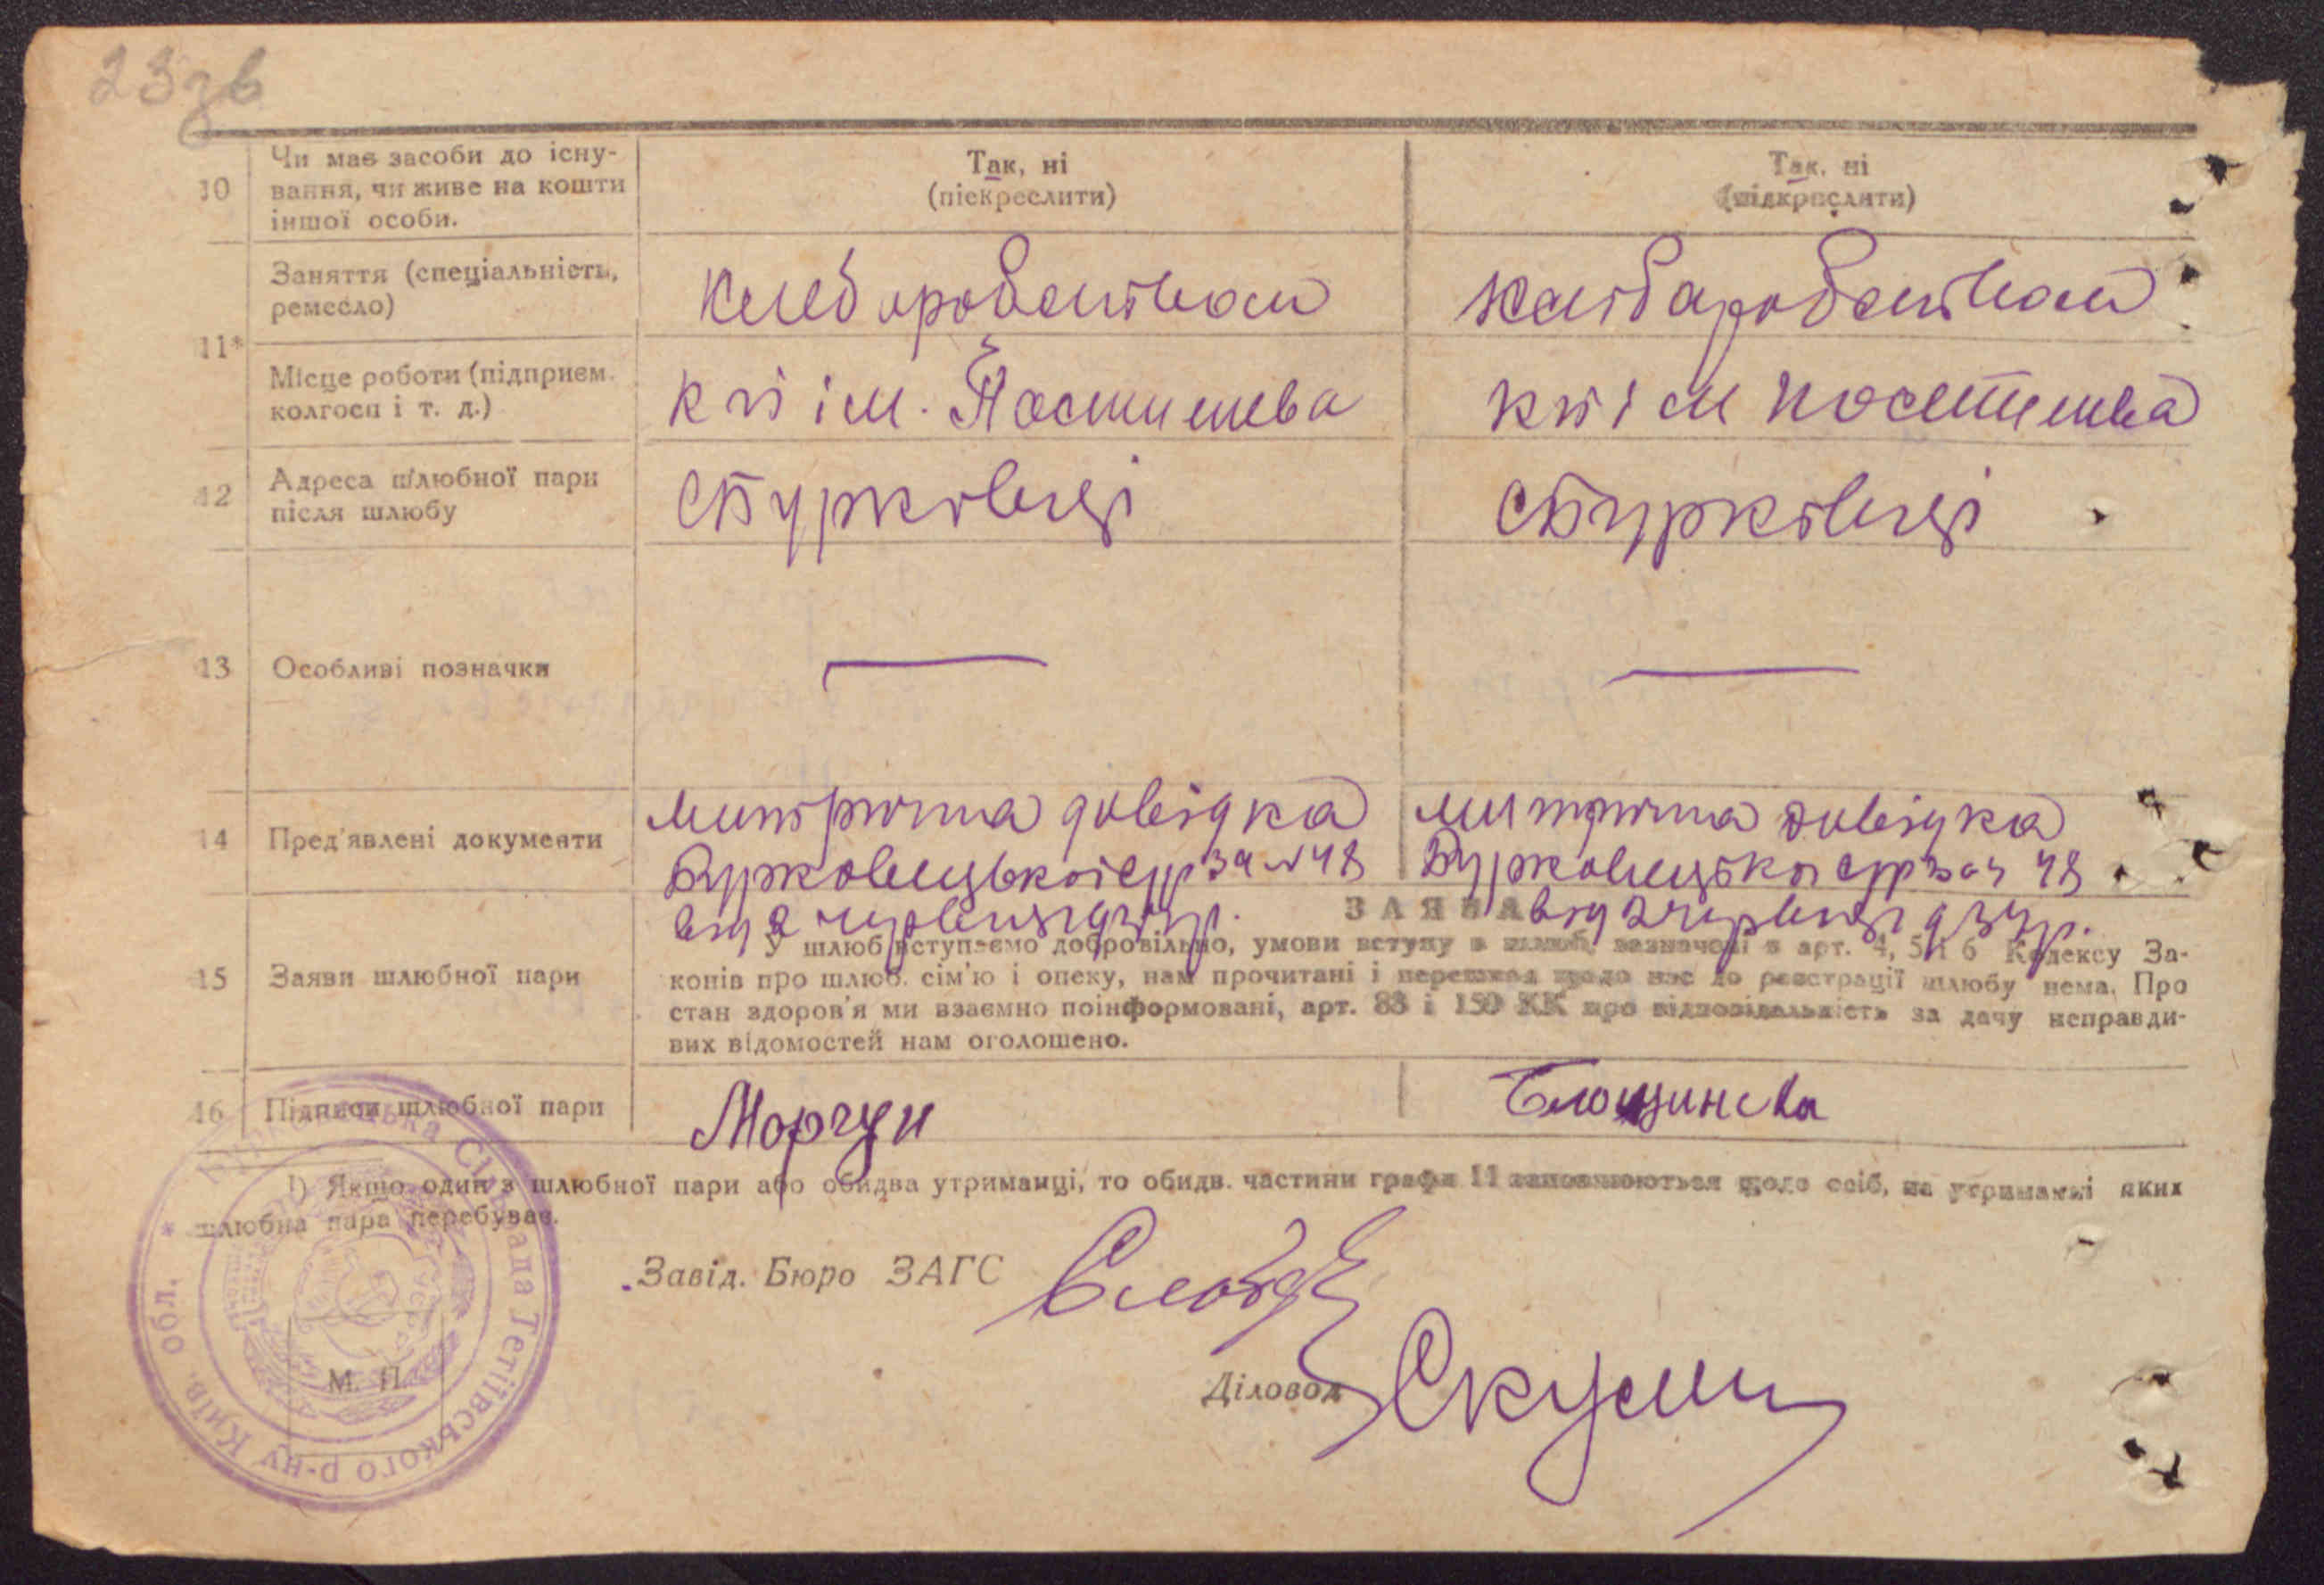 23зв
10 Чи має засоби до існу- Так, ні Так, ні
вання, чи живе на кошти (піскреслити) (підкреслити)
іншої особи.
11* Заняття (спеціальність, хлеборобством хлібаробством
ремесло)
Місце роботи (підприєм. к г і ім. Постишева Постишева
колгосп і т. д.)
12 Адреса шлюбної пари с Бурківці с Бурківці
після шлюбу
13 Особливі позначки — —
14 Пред'явлені документи довідка довідка
Бурковецької срр за № 48 Бурковецької срр 48
від 2 червня від 2 червня
ЗАЯВА
15 Заяви шлюбної пари У шлюб вступаємо добровільно, умови вступу в шлюб, зазначені в арт. 4, 5 і 6 Кодексу За-
конів про шлюб. сім'ю і опеку, нам прочитані і перешкод щодо нас до реєстрації шлюбу нема. Про
стан здоров'я ми взаємно поінформовані, арт. 83 і 150 КК про відповідальність за дачу неправди-
вих відомостей нам оголошено.
16 Підписи шлюбної пари Моргун Блощинска
1) Якщо один з шлюбної пари або обидва утриманці, то обидв. частини графи 11 заповнюються щодо осіб, на утриманні яких
шлюбна пара перебуває.
Завід. Бюро ЗАГС
Діловод
М. П.
Сільрада Тетіївського р-ну Київ. обл.